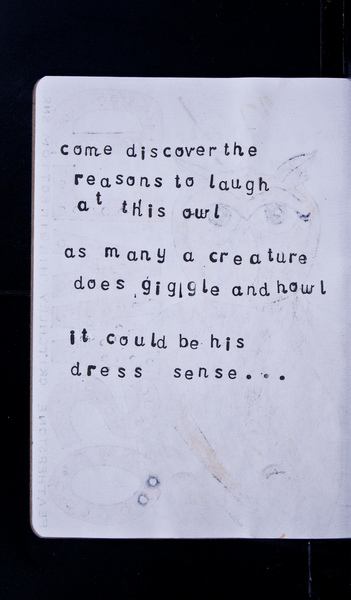 come discover the
reasons to laugh
at this owl
as many a creature
does giggle and howl
it could be his
dress sense...